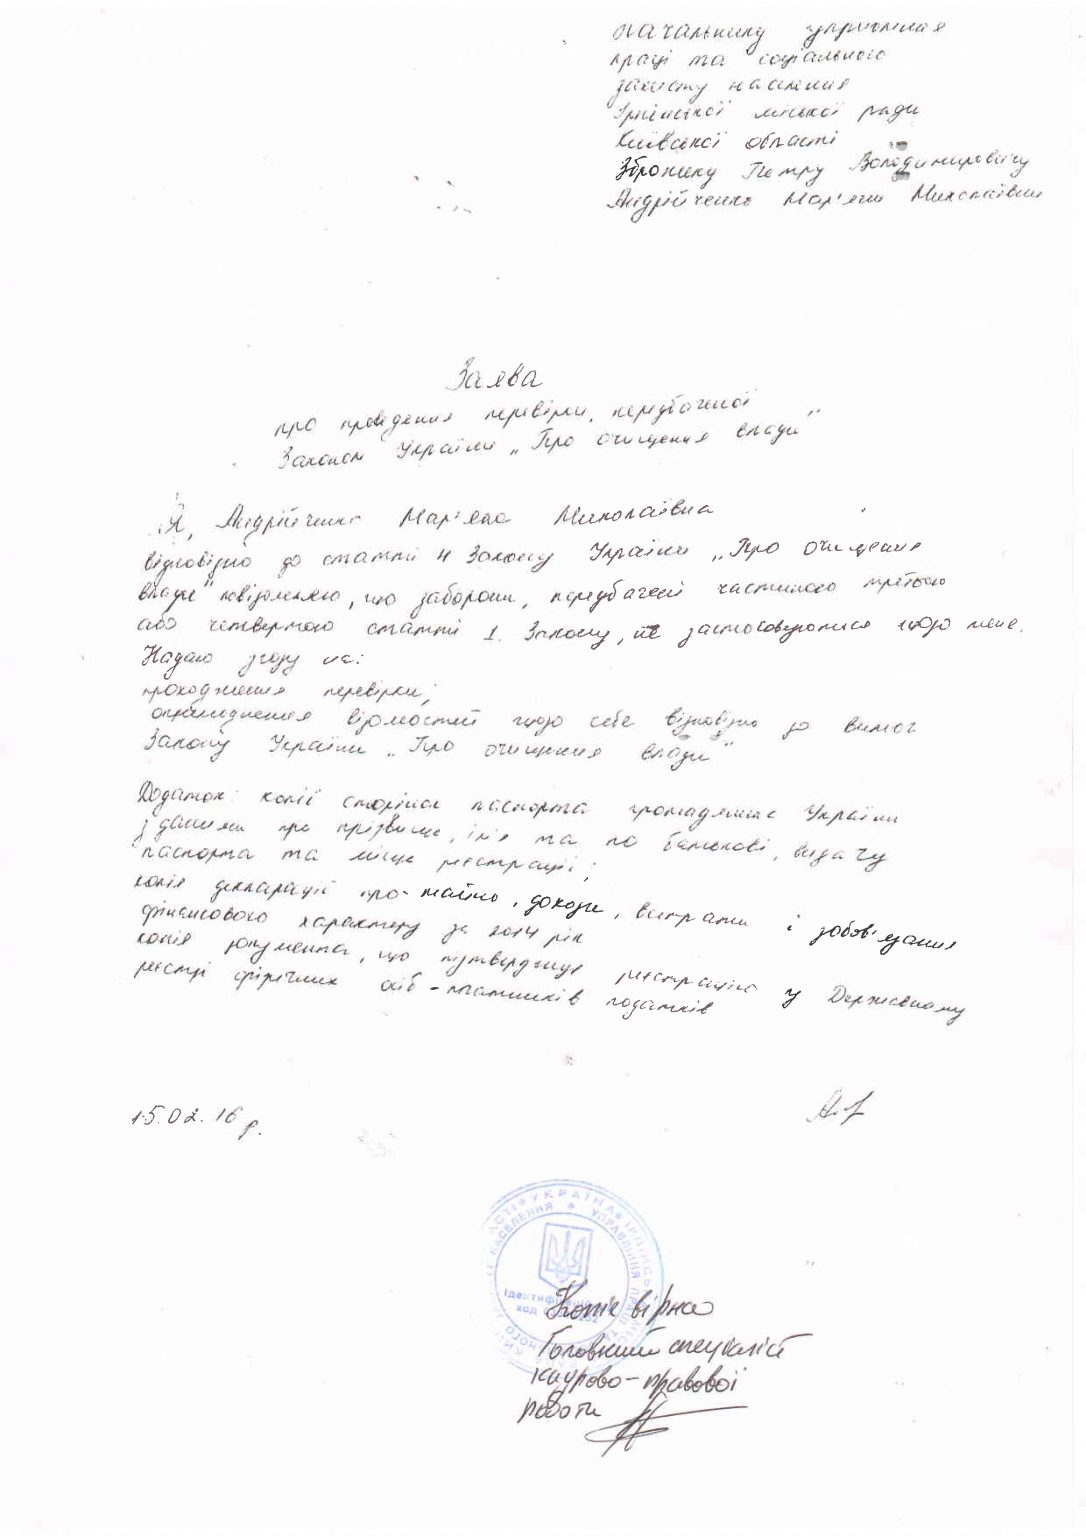 Начальнику управління
праці та соціального
захисту населення
Ірпінської міської ради
Київської області
Збронику Петру Володимировичу
Андрійченко Мар'яни Миколаївни
Заява
про проведення перевірки, передбаченої
Законом України „Про очищення влади"
Я, Андрійченко Мар'яна Миколаївна
відповідно до статті 4 Закону України „Про очищення
влади" повідомляю, що заборони, передбачені частиною третьою
або четвертою статті 1 Закону, не застосовуються щодо мене.
Надаю згоду на:
проходження перевірки;
оприлюднення відомостей щодо себе відповідно до вимог
Закону України „Про очищення влади"
Додаток: копії сторінок паспорта громадянина України
з даними про прізвище, ім'я та по батькові, видачу
паспорта та місце реєстрації;
копія декларації про майно, доходи, витрати і зобов'язання
фінансового характеру за 2014 рік
копія документа, що підтверджує реєстрацію у Державному
реєстрі фізичних осіб-платників податків
15.02.16 р.
УКРАЇНА
НАСЕЛЕННЯ УПРАВЛІННЯ ПРАЦІ ТА
код
Копія вірна
Головний спеціаліст
кадрово-правової
роботи